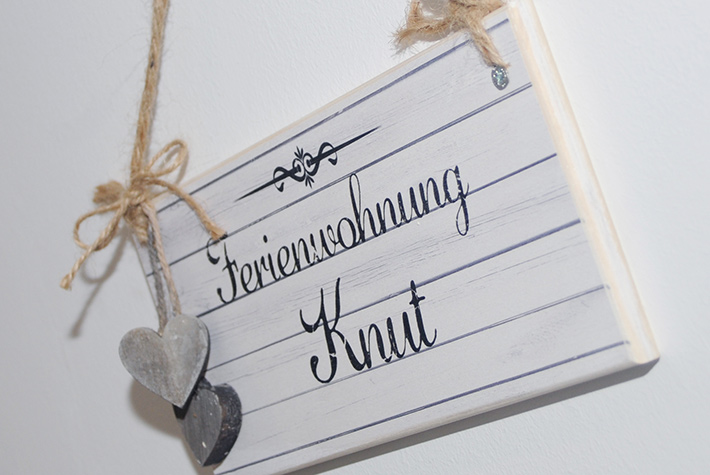 Ferienwohnung
Knut